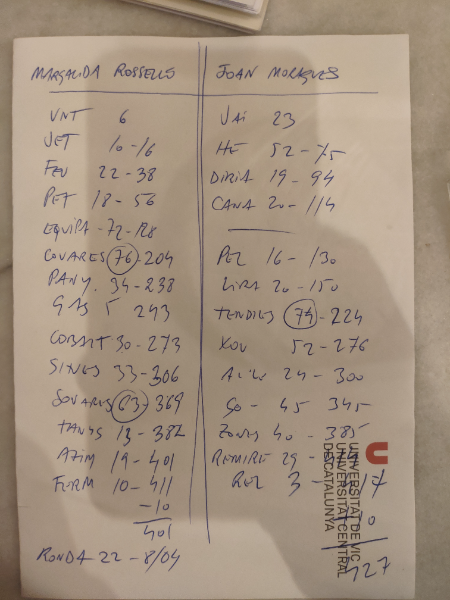 MARGALIDA ROSSELLÓ
VNT 6
JET 10-16
FEU 22-38
PET 18-56
EQUIPA -72-128
COVARES 76-204
PANY. 34-238
GAS 5 243
COBALT 30-273
33-306
SOVARES 63-369
TANYS 13-382
AZIM 19-401
FERM 10-411
-10
401
RONDA 22 - 8/04
JOAN MORAGUES
VAI 23
HE 52-75
DIRIA 19-94
CANA 20-114
PEL 16-130
LIRA 20-150
74-224
XOU 52-276
24-300
GO - 45 345
ZONES 40 - 385
REMIRE 29 -
REL 3 -
10
427
UNIVERSITAT DE VIC
UNIVERSITAT CENTRAL
DE CATALUNYA